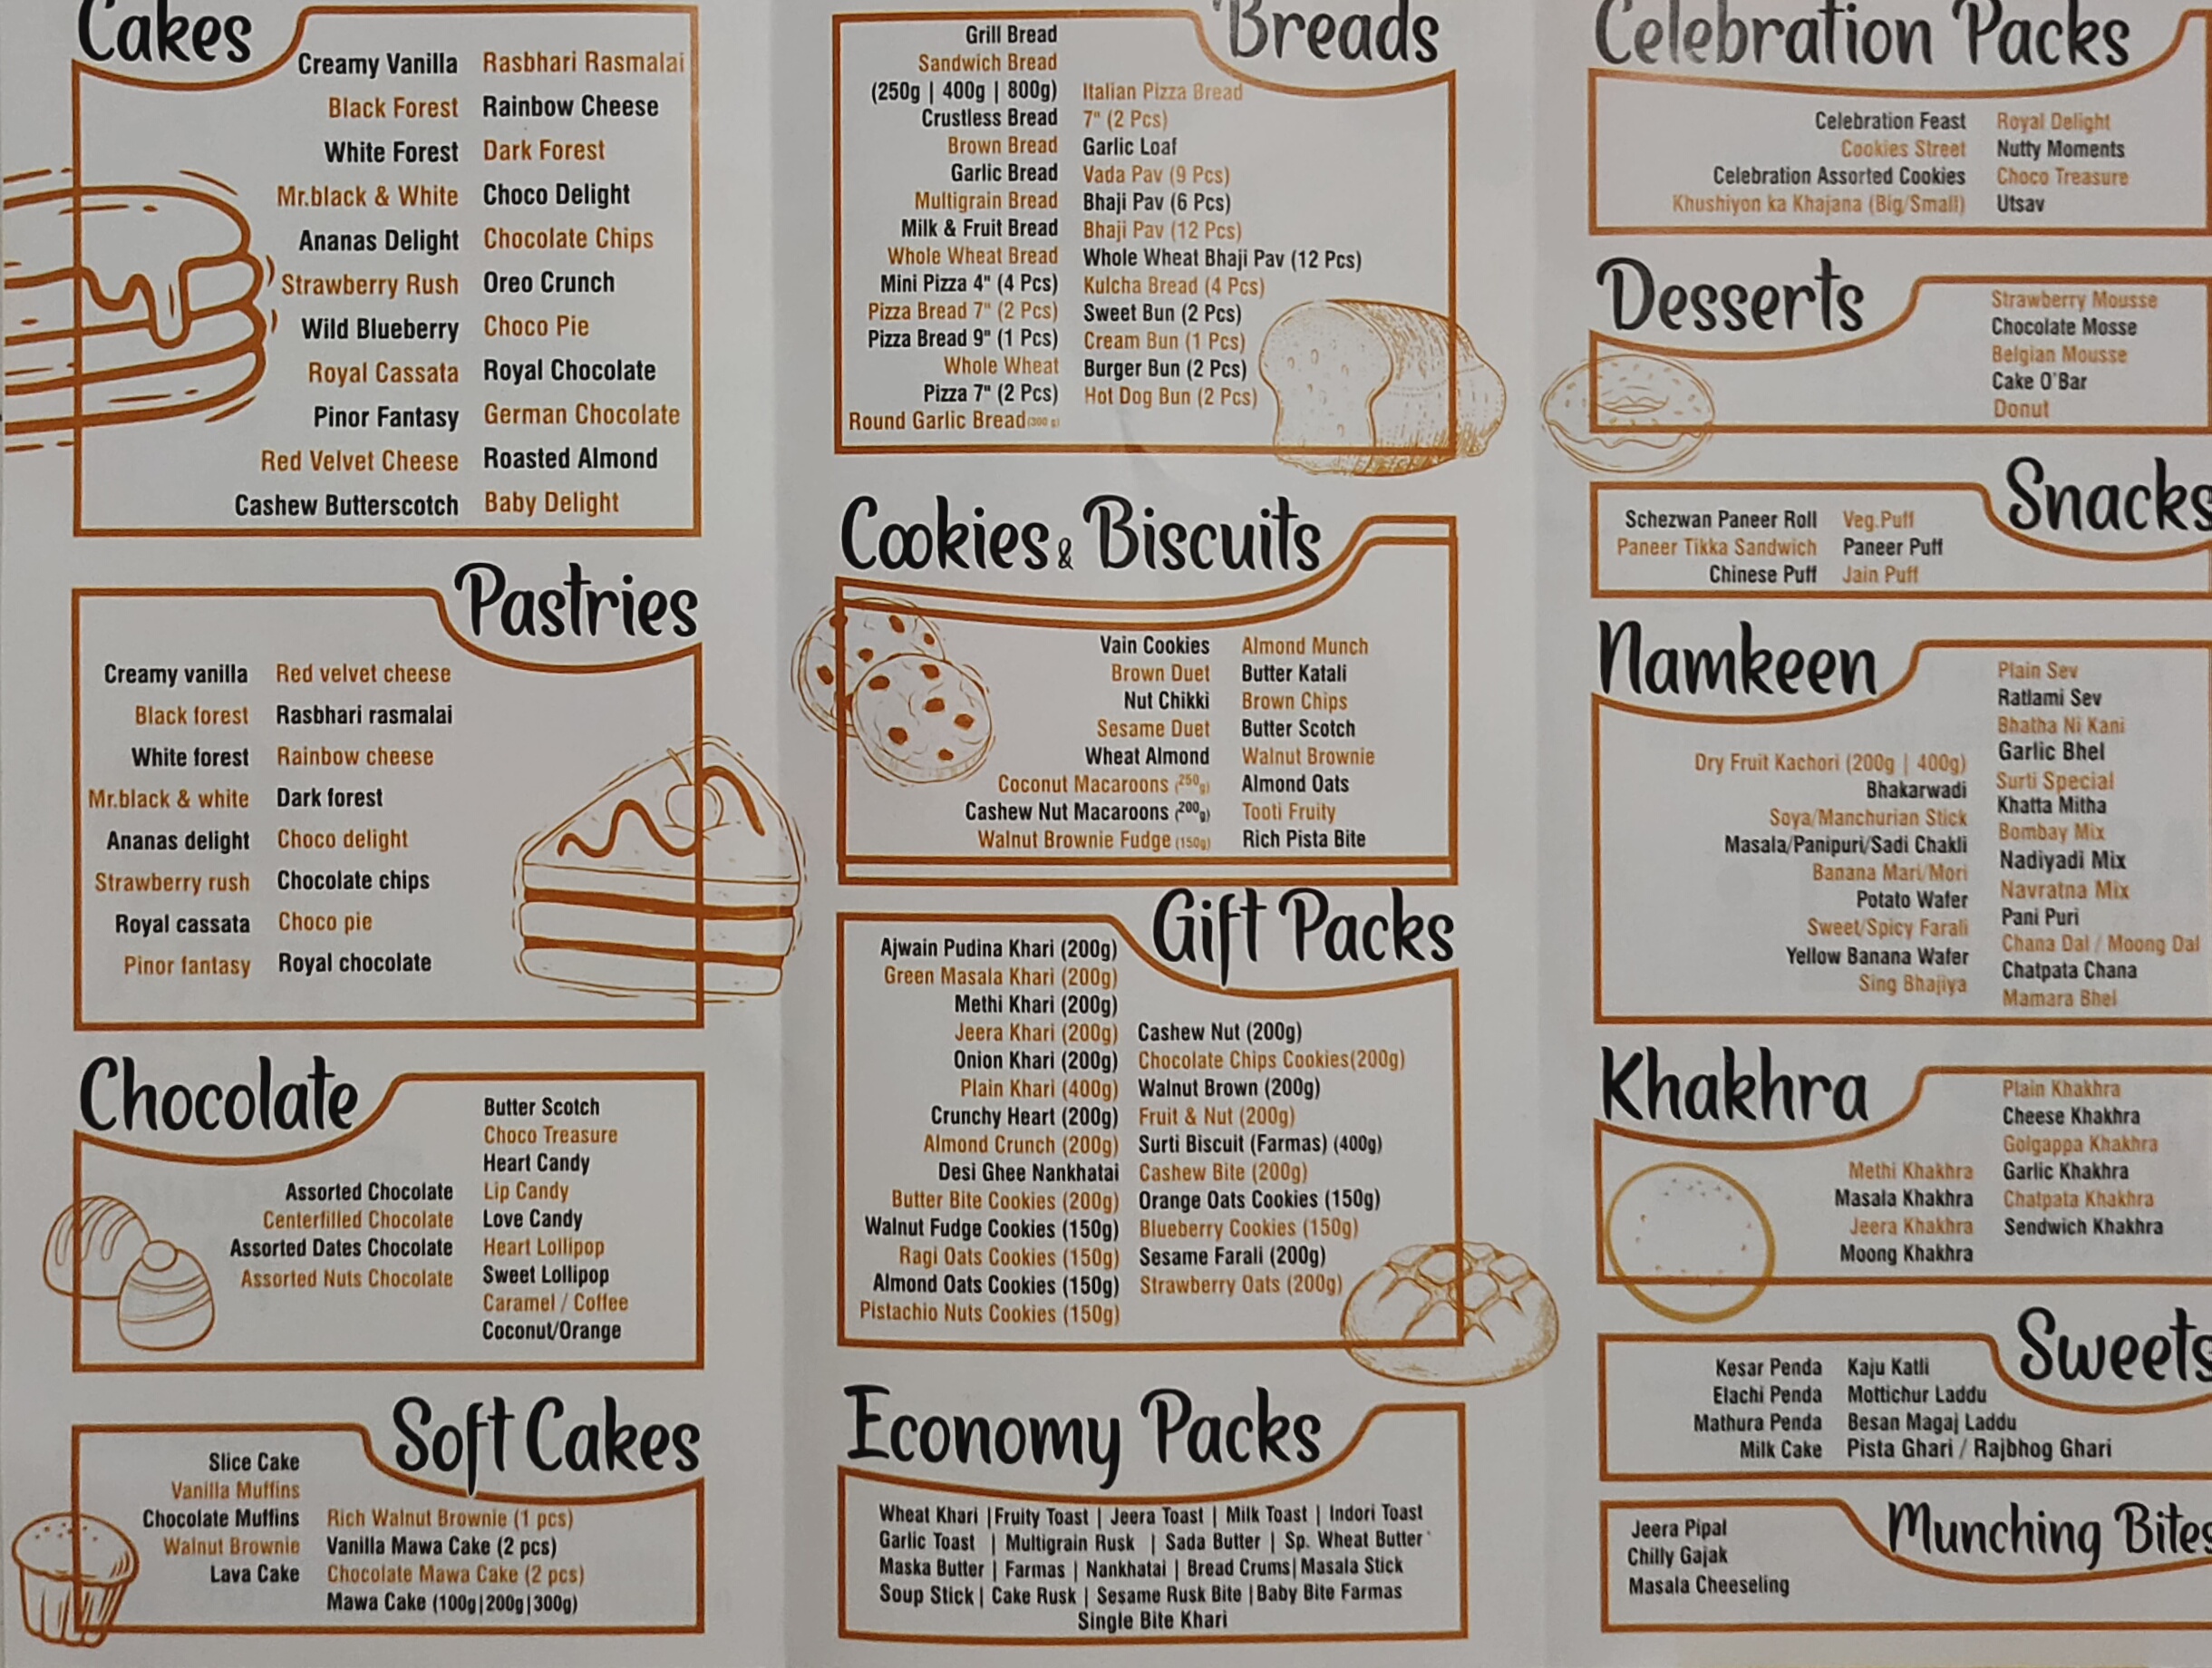 Cakes
Creamy Vanilla
Black Forest
White Forest
Mr.black & White
Ananas Delight
Strawberry Rush
Wild Blueberry
Royal Cassata
Pinor Fantasy
Red Velvet Cheese
Cashew Butterscotch
Rasbhari Rasmalai
Rainbow Cheese
Dark Forest
Choco Delight
Chocolate Chips
Oreo Crunch
Choco Pie
Royal Chocolate
German Chocolate
Roasted Almond
Baby Delight
Pastries
Creamy vanilla
Black forest
White forest
Mr.black & white
Ananas delight
Strawberry rush
Royal cassata
Pinor fantasy
Red velvet cheese
Rasbhari rasmalai
Rainbow cheese
Dark forest
Choco delight
Chocolate chips
Choco pie
Royal chocolate
Chocolate
Assorted Chocolate
Centerfilled Chocolate
Assorted Dates Chocolate
Assorted Nuts Chocolate
Butter Scotch
Choco Treasure
Heart Candy
Lip Candy
Love Candy
Heart Lollipop
Sweet Lollipop
Caramel / Coffee
Coconut/Orange
Soft Cakes
Slice Cake
Vanilla Muffins
Chocolate Muffins
Walnut Brownie
Lava Cake
Rich Walnut Brownie (1 pcs)
Vanilla Mawa Cake (2 pcs)
Chocolate Mawa Cake (2 pcs)
Mawa Cake (100g|200g|300g)
Breads
Grill Bread
Sandwich Bread
(250g | 400g | 800g)
Crustless Bread
Brown Bread
Garlic Bread
Multigrain Bread
Milk & Fruit Bread
Whole Wheat Bread
Mini Pizza 4" (4 Pcs)
Pizza Bread 7" (2 Pcs)
Pizza Bread 9" (1 Pcs)
Whole Wheat
Pizza 7" (2 Pcs)
Round Garlic Bread (300 g)
Italian Pizza Bread
7" (2 Pcs)
Garlic Loaf
Vada Pav (9 Pcs)
Bhaji Pav (6 Pcs)
Bhaji Pav (12 Pcs)
Whole Wheat Bhaji Pav (12 Pcs)
Kulcha Bread (4 Pcs)
Sweet Bun (2 Pcs)
Cream Bun (1 Pcs)
Burger Bun (2 Pcs)
Hot Dog Bun (2 Pcs)
Cookies & Biscuits
Vain Cookies
Brown Duet
Nut Chikki
Sesame Duet
Wheat Almond
Coconut Macaroons (250g)
Cashew Nut Macaroons (200g)
Walnut Brownie Fudge (150g)
Almond Munch
Butter Katali
Brown Chips
Butter Scotch
Walnut Brownie
Almond Oats
Tooti Fruity
Rich Pista Bite
Gift Packs
Ajwain Pudina Khari (200g)
Green Masala Khari (200g)
Methi Khari (200g)
Jeera Khari (200g)
Onion Khari (200g)
Plain Khari (400g)
Crunchy Heart (200g)
Almond Crunch (200g)
Desi Ghee Nankhatai
Butter Bite Cookies (200g)
Walnut Fudge Cookies (150g)
Ragi Oats Cookies (150g)
Almond Oats Cookies (150g)
Pistachio Nuts Cookies (150g)
Cashew Nut (200g)
Chocolate Chips Cookies(200g)
Walnut Brown (200g)
Fruit & Nut (200g)
Surti Biscuit (Farmas) (400g)
Cashew Bite (200g)
Orange Oats Cookies (150g)
Blueberry Cookies (150g)
Sesame Farali (200g)
Strawberry Oats (200g)
Economy Packs
Wheat Khari |Fruity Toast | Jeera Toast | Milk Toast | Indori Toast
Garlic Toast | Multigrain Rusk | Sada Butter | Sp. Wheat Butter
Maska Butter | Farmas | Nankhatai | Bread Crums| Masala Stick
Soup Stick | Cake Rusk | Sesame Rusk Bite |Baby Bite Farmas
Single Bite Khari
Celebration Packs
Celebration Feast
Cookies Street
Celebration Assorted Cookies
Khushiyon ka Khajana (Big/Small)
Royal Delight
Nutty Moments
Choco Treasure
Utsav
Desserts
Strawberry Mousse
Chocolate Mosse
Belgian Mousse
Cake O'Bar
Donut
Snacks
Schezwan Paneer Roll
Paneer Tikka Sandwich
Chinese Puff
Veg.Puff
Paneer Puff
Jain Puff
Namkeen
Dry Fruit Kachori (200g | 400g)
Bhakarwadi
Soya/Manchurian Stick
Masala/Panipuri/Sadi Chakli
Banana Mari/Mori
Potato Wafer
Sweet/Spicy Farali
Yellow Banana Wafer
Sing Bhajiya
Plain Sev
Ratlami Sev
Bhatha Ni Kani
Garlic Bhel
Surti Special
Khatta Mitha
Bombay Mix
Nadiyadi Mix
Navratna Mix
Pani Puri
Chana Dal / Moong Dal
Chatpata Chana
Mamara Bhel
Khakhra
Methi Khakhra
Masala Khakhra
Jeera Khakhra
Moong Khakhra
Plain Khakhra
Cheese Khakhra
Golgappa Khakhra
Garlic Khakhra
Chatpata Khakhra
Sendwich Khakhra
Sweets
Kesar Penda
Elachi Penda
Mathura Penda
Milk Cake
Kaju Katli
Mottichur Laddu
Besan Magaj Laddu
Pista Ghari / Rajbhog Ghari
Munching Bites
Jeera Pipal
Chilly Gajak
Masala Cheeseling